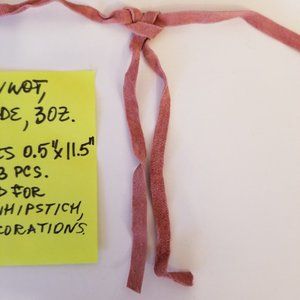 DE, 3OZ.
0.5"x11.5"
3 PCS.
FOR
WHIPSTICH,
CORATIONS.